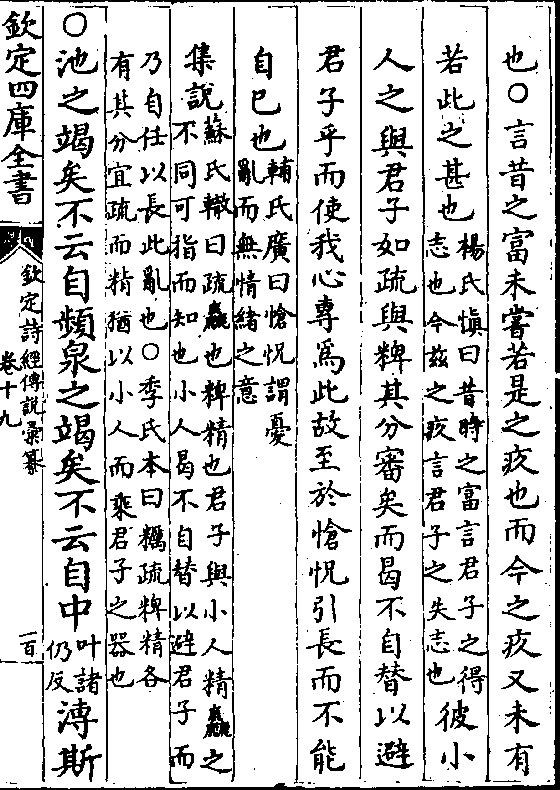 也○言昔之富未嘗若是之疚也而今之疚又未有
若此之甚也楊氏慎曰昔時之富言君子之得
志也今兹之疚言君子之失志也彼小
人之與君子如疏與粺其分審矣而曷不自替以避
君子乎而使我心專爲此故至於愴怳引長而不能
自已也輔氏廣曰愴怳謂憂
亂而無情緒之意
集說蘇氏轍曰疏麤也粺精也君子與小人精麤之
不同可指而知也小人曷不自替以避君子而
乃自任以長此亂也○季氏本曰糲疏粺精各
有其分宜疏而精猶以小人而乘君子之器也
○池之竭矣不云自頻泉之竭矣不云自中叶諸
仍反溥斯
欽定四庫全書
欽定詩經傳說彙纂
卷十九
一百